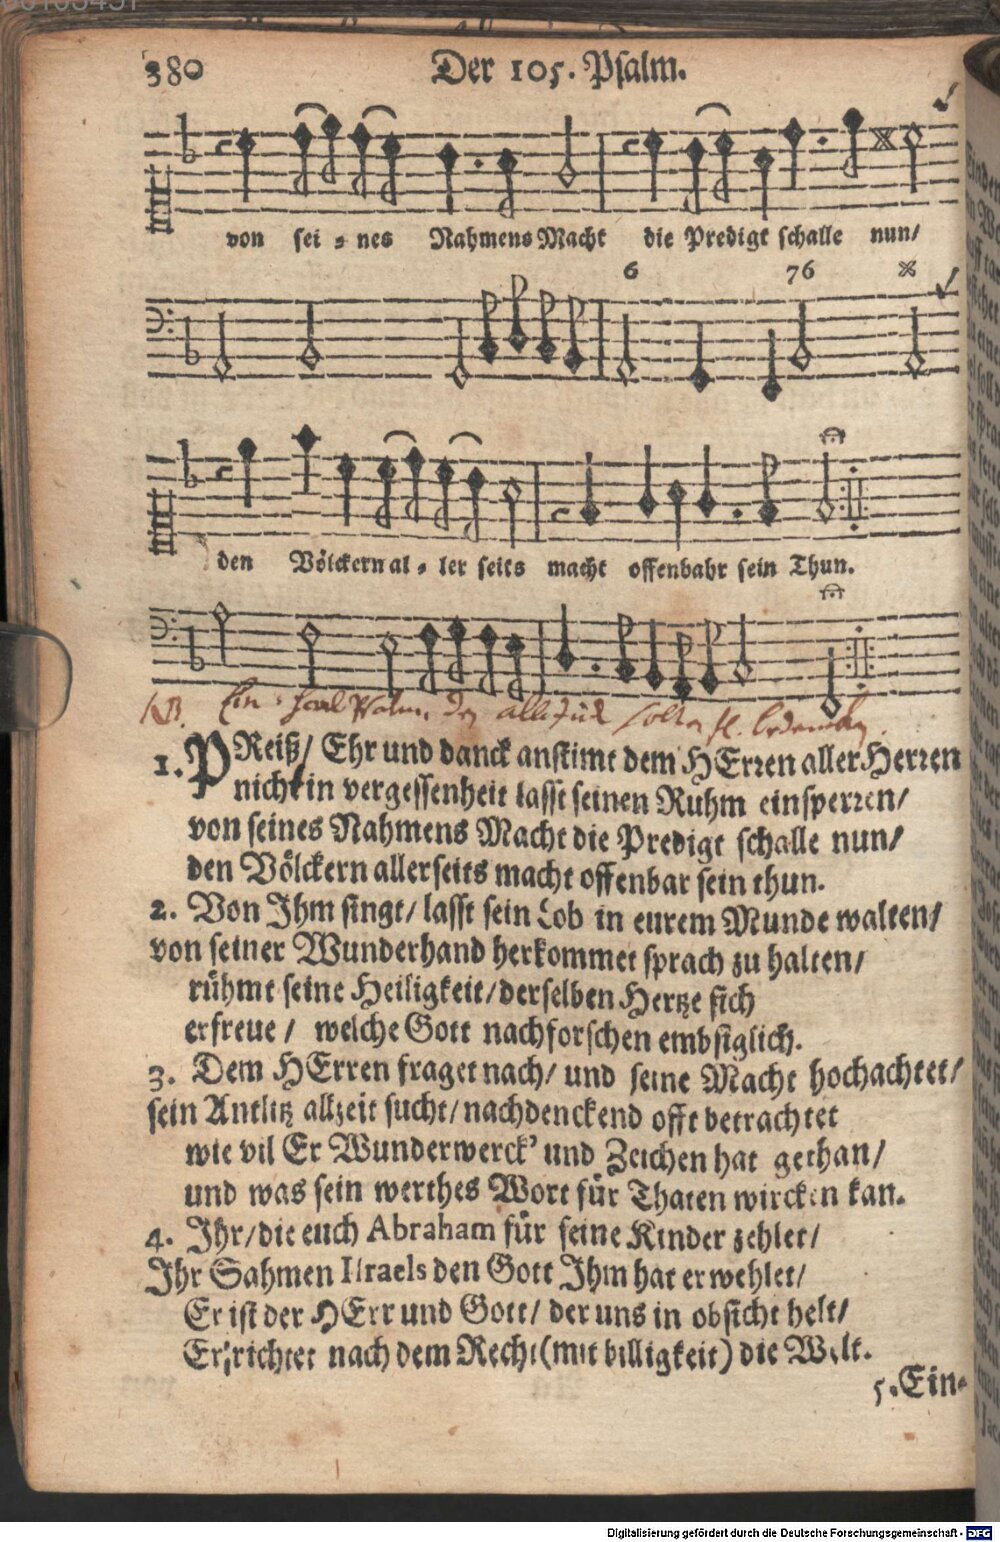 380 Der 105. Psalm.
von sei = nes Nahmens Macht die Predigt schalle nun/
6 76
den Völckern al = ler seits macht offenbahr sein Thun.
NB. Ein
1. PReiß/ Ehr und danck anstimt dem HErren aller Herren
nicht in vergessenheit lasst seinen Ruhm einsperren/
von seines Nahmens Macht die Predigt schalle nun/
den Völckern allerseits macht offenbar sein thun.
2. Von Ihm singt/ lasst sein Lob in eurem Munde walten/
von seiner Wunderhand herkommet sprach zu halten/
rühmt seine Heiligkeit/ derselben Hertze sich
erfreue / welche Gott nachforschen embsiglich.
3. Dem HErren fraget nach/ und seine Macht hochachtet/
sein Antlitz allzeit sucht/ nachdenckend offt betrachtet
wie vil Er Wunderwerck' und Zeichen hat gethan/
und was sein werthes Wort für Thaten wircken kan.
4. Ihr/ die euch Abraham für seine Kinder zehlet/
Ihr Sahmen Israels den Gott Ihm hat erwehlet/
Er ist der HErr und Gott/ der uns in obsicht helt/
Er richtet nach dem Recht (mit billigkeit) die Welt.
5. Ein-
Digitalisierung gefördert durch die Deutsche Forschungsgemeinschaft - DFG